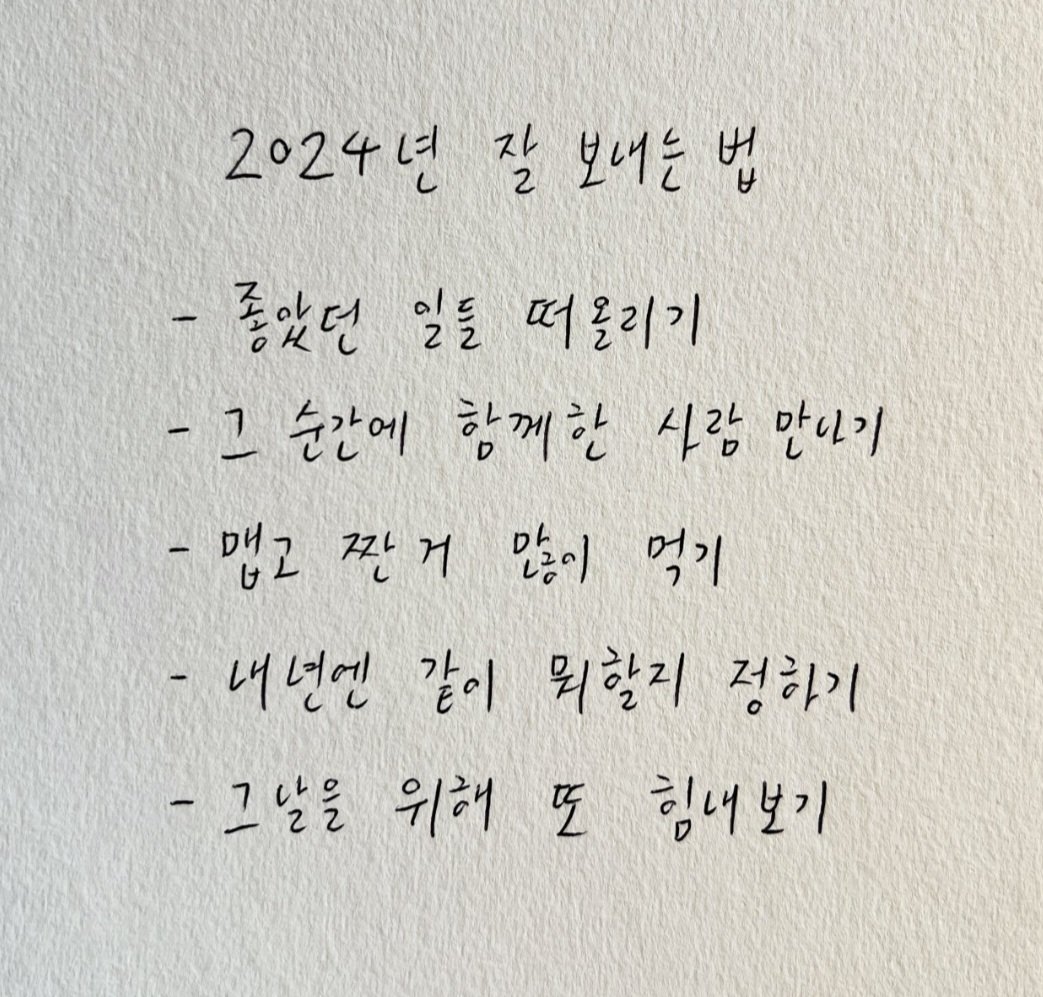 2024년 잘 보내는 법
- 좋았던 일들 떠올리기
- 그 순간에 함께한 사람 만나기
- 맵고 짠 거 많이 먹기
- 내년엔 같이 뭐할지 정하기
- 그날을 위해 또 힘내보기